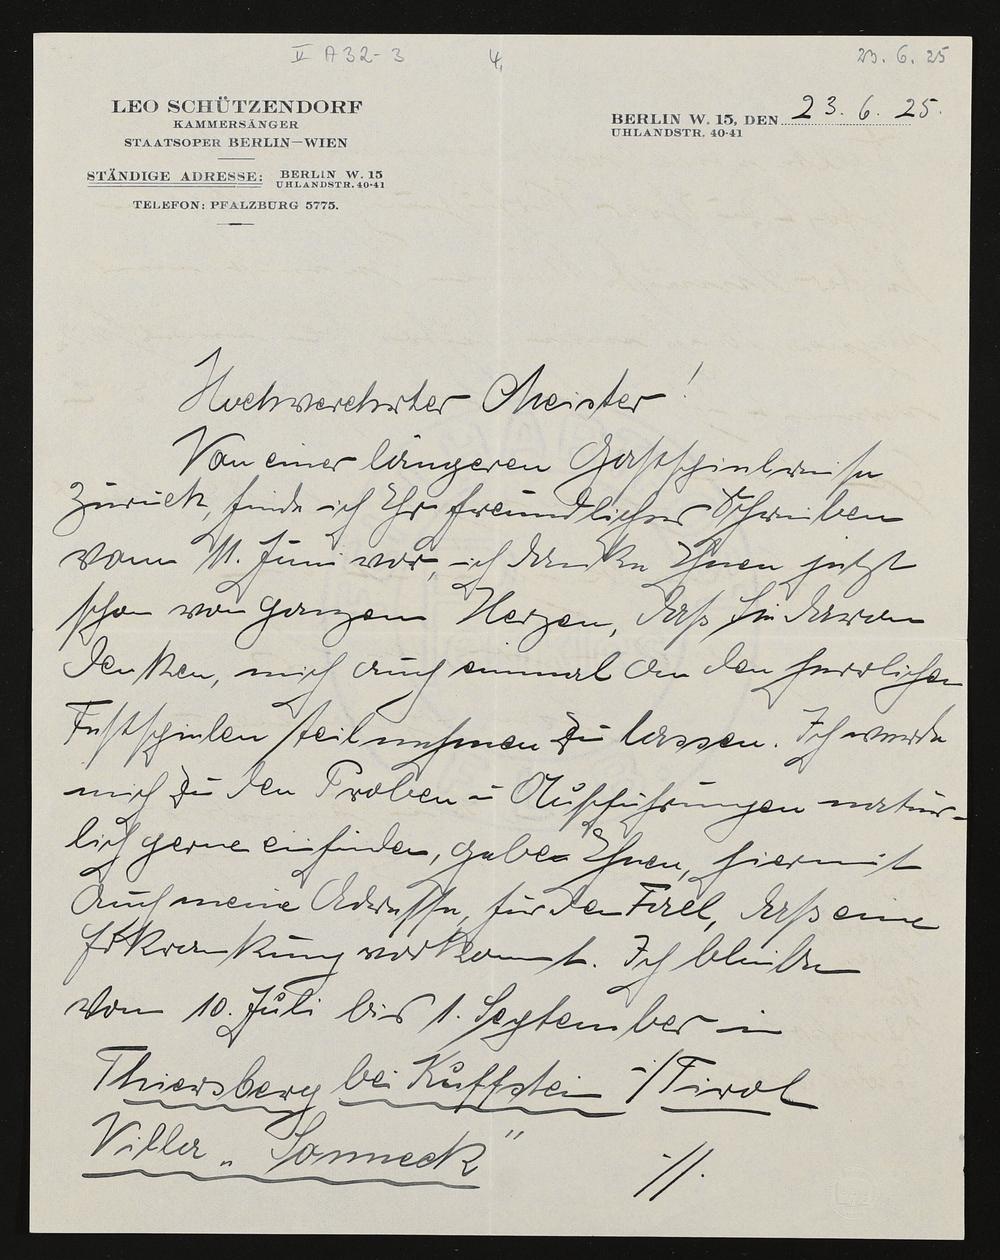 II A 32-3 4, 23. 6. 25
LEO SCHÜTZENDORF
KAMMERSÄNGER
STAATSOPER BERLIN—WIEN
STÄNDIGE ADRESSE: BERLIN W. 15
UHLANDSTR. 40-41
TELEFON: PFALZBURG 5775.
BERLIN W. 15, DEN 23. 6. 25.
UHLANDSTR. 40-41
Hochverehrter Meister!
Von einer längeren Gastspielreise
zurück, finde ich Ihr freundliches Schreiben
vom 11. Juni vor, ich danke Ihnen jetzt
schon von ganzem Herzen, daß Sie daran
denken, mich auch einmal an den herrlichen
Festspielen teilnehmen zu lassen. Ich werde
mich zu den Proben u Aufführungen natür-
lich gerne einfinden, gebe Ihnen, hiermit
auch meine Adresse, für den Fall, daß eine
Erkrankung vorkommt. Ich bleibe
vom 10. Juli bis 1. September in
Thiersberg bei Kuffstein i/Tirol
Villa „Sonneck"
·//.